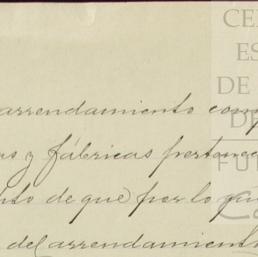 CE
ES
DE
DE
FU
arrendamiento com
y fábricas pertenec
de que por lo que
del arrendamiento